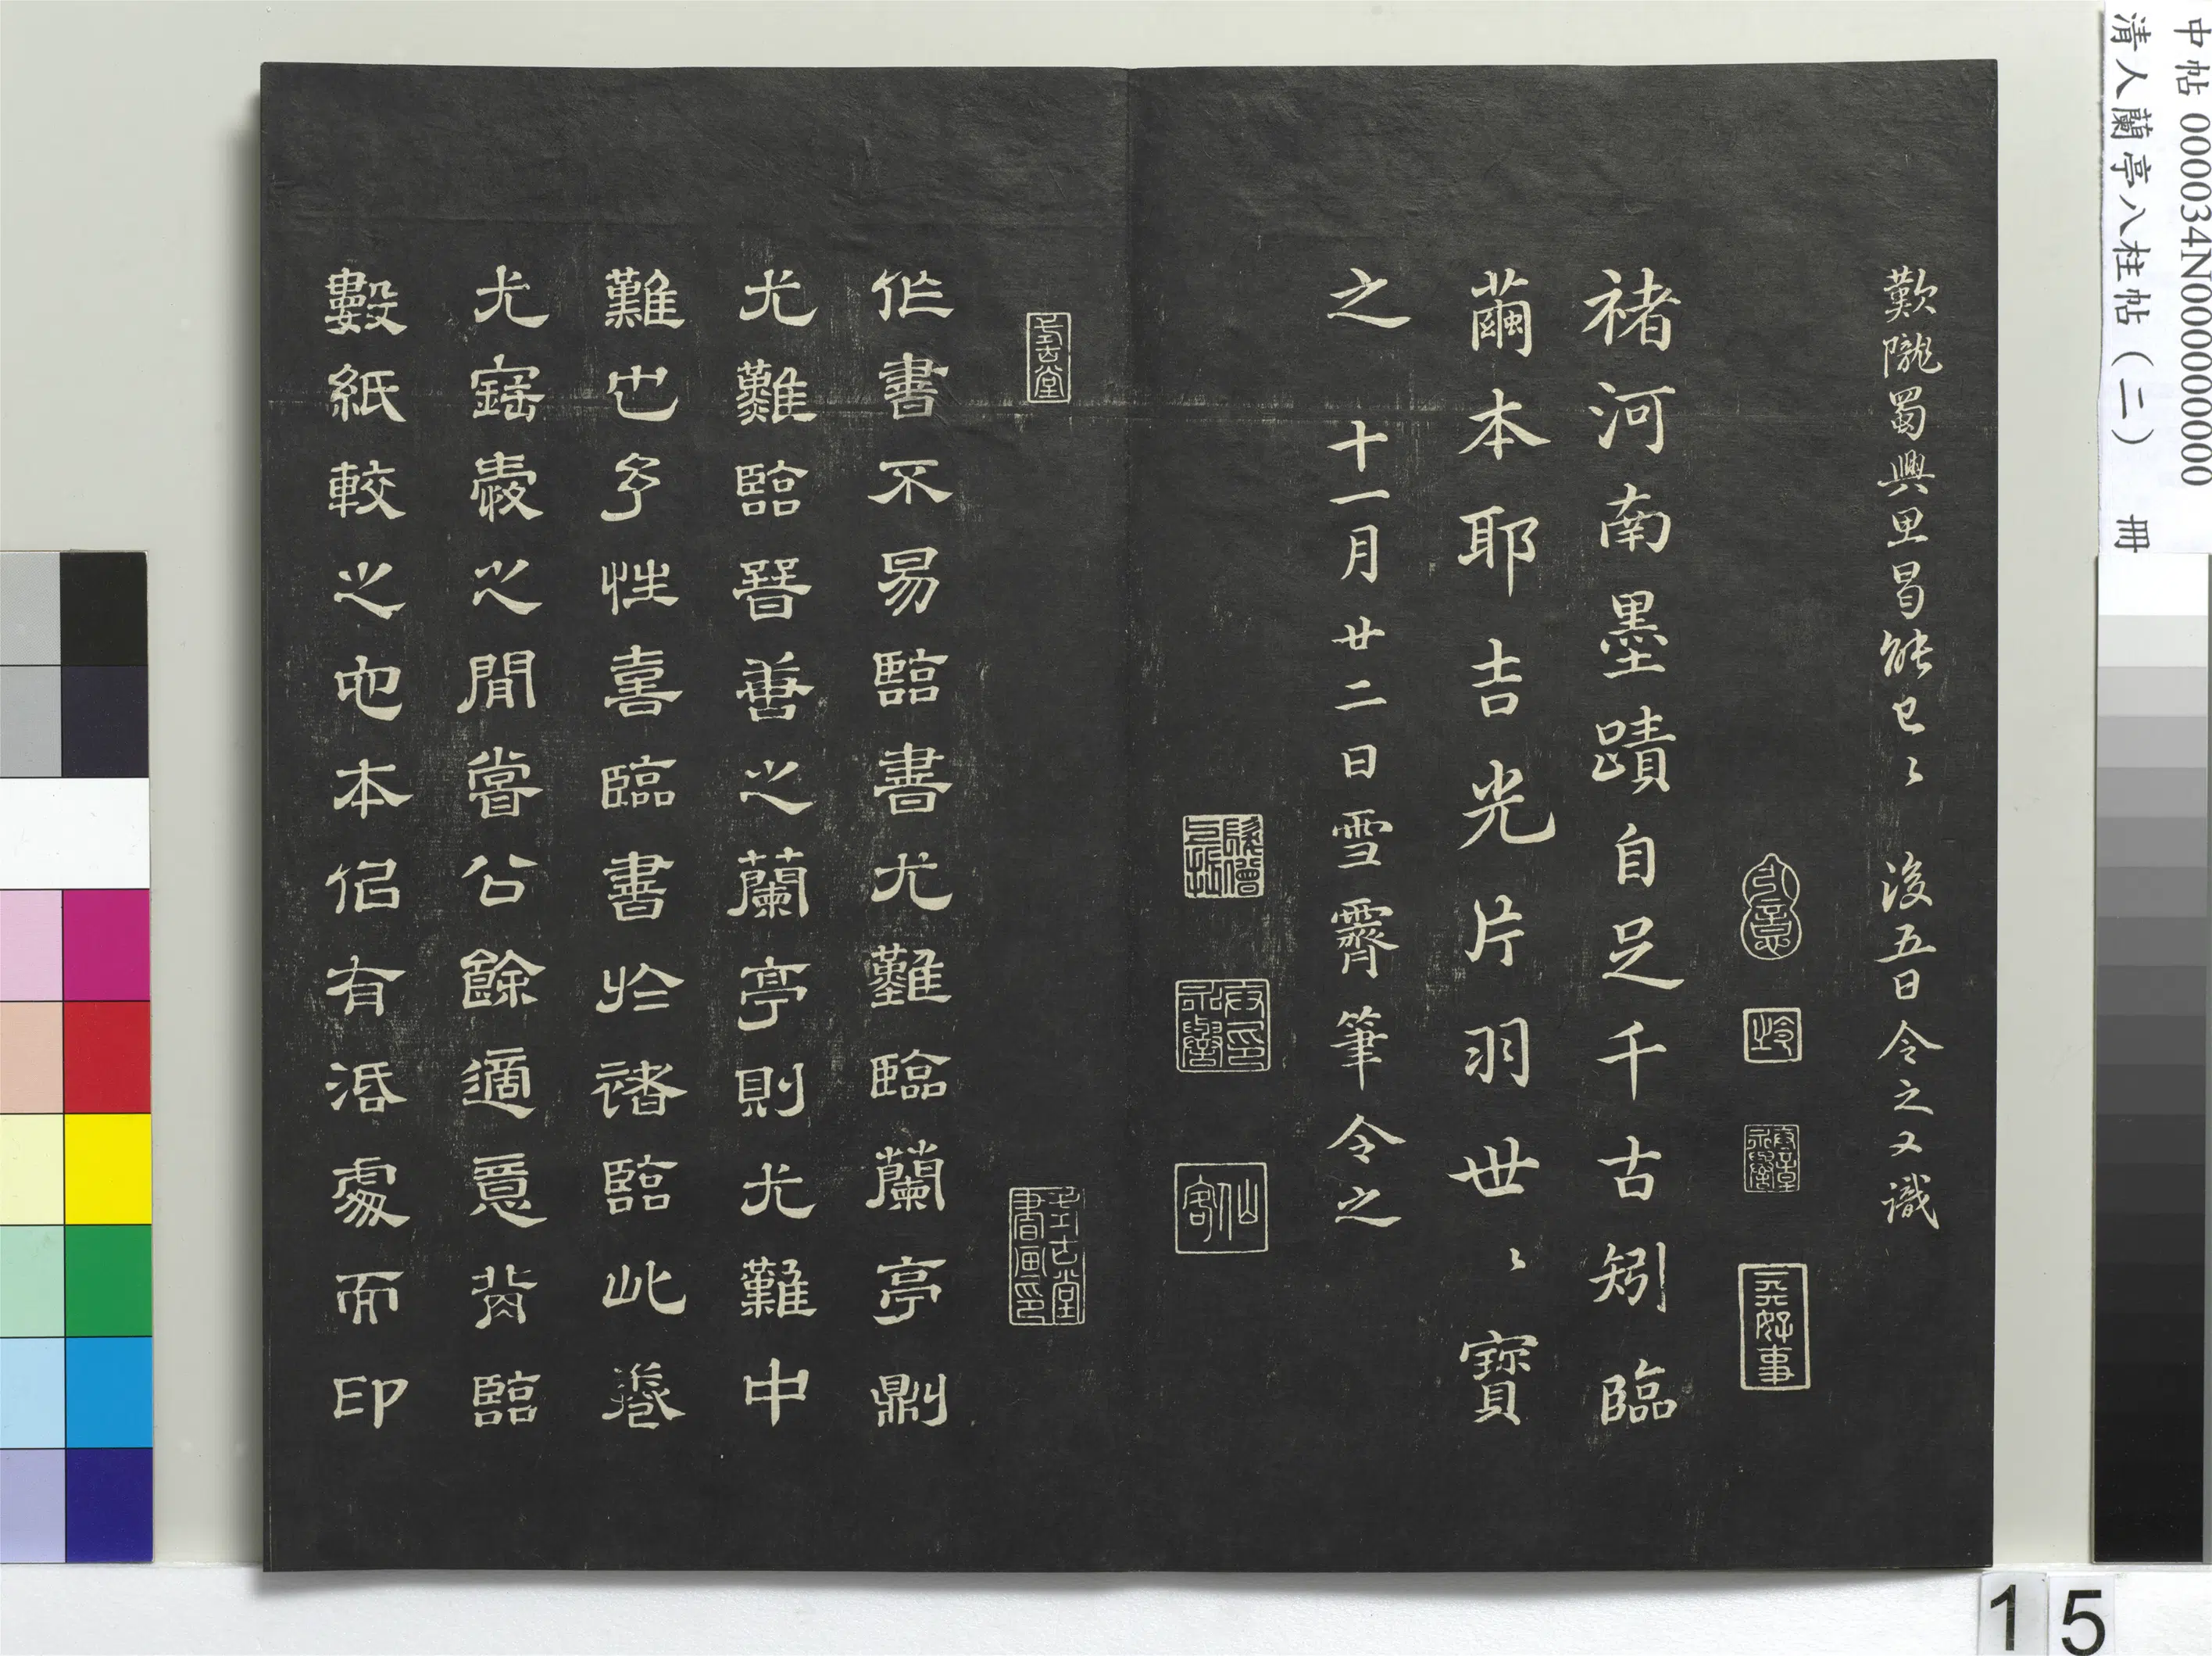 中帖 000034N000000000000
清人蘭亭八柱帖（二） 冊
歎隴蜀興思曷能已〻 後五日令之又識
褚河南墨蹟自足千古矧臨
繭本耶吉光片羽世〻寶
之 十一月廿二日雪霽筆令之
卞永譽
仙客
式古堂
式古堂書画印
作書不易臨書尤難臨蘭亭則
尤難臨晉善之蘭亭則尤難中
難也予性喜臨書於褚臨此卷
尤寤寐之間嘗公餘適意背臨
數紙較之他本似有活處而印
15